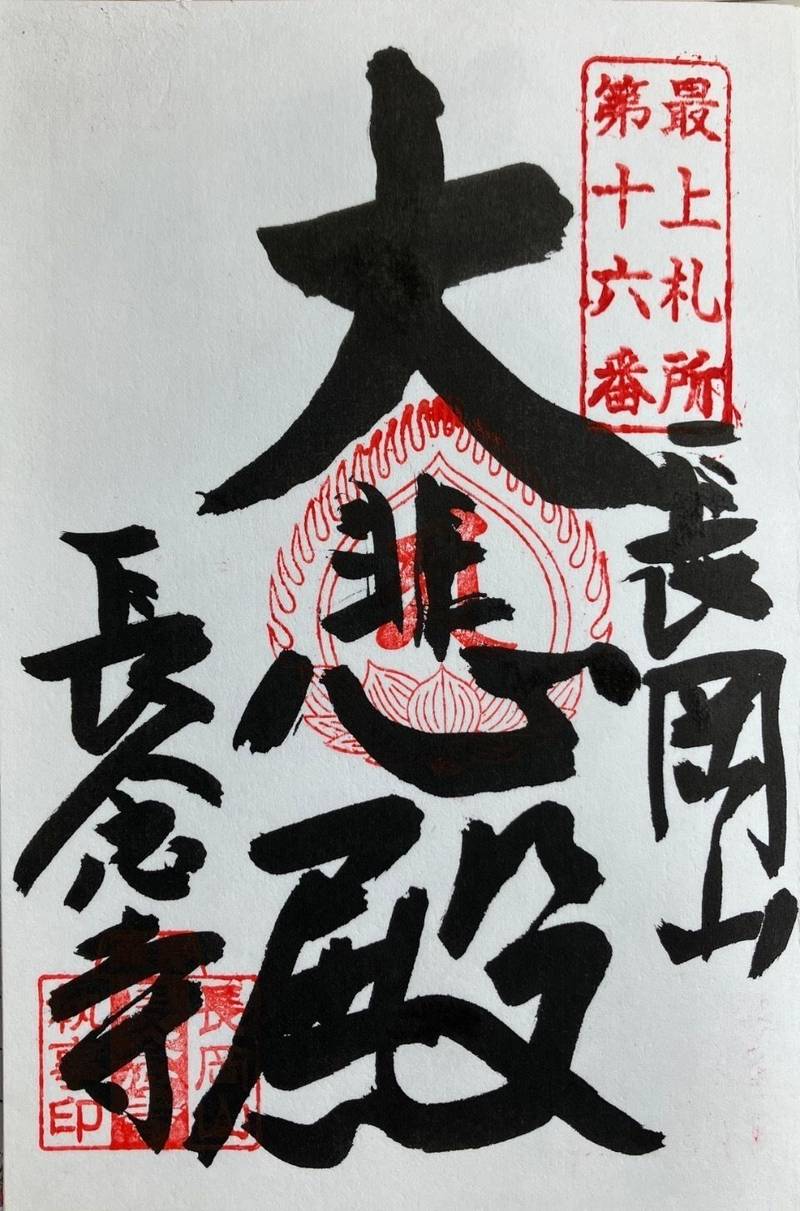 最上札所
第十六番
長岡山
大悲殿
長念寺
長岡山
長念寺
執事印